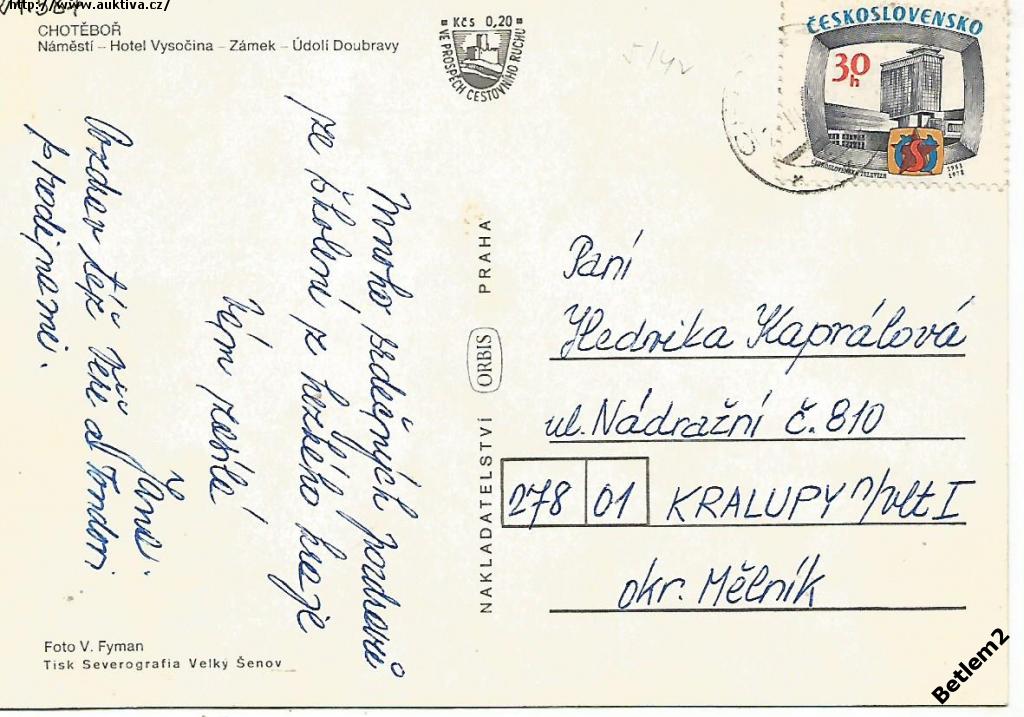 http://www.auktiva.cz/
CHOTĚBOŘ
Náměstí – Hotel Vysočina – Zámek – Údolí Doubravy
Kčs 0,20
VE PROSPĚCH CESTOVNÍHO RUCHU
5/42
ČESKOSLOVENSKO
30 h
ČESKOSLOVENSKÁ TELEVIZE
1953
1978
Mnoho srdečných pozdravů
ze školení z hezkého kraje
Vám zasílá
Jana.
Pozdrav též
a Tondovi
p. prodejnami.
NAKLADATELSTVÍ ORBIS PRAHA
Paní
Hedvika Kaprálová
ul. Nádražní č. 810
278 01 KRALUPY n/Vlt I
okr. Mělník
Foto V. Fyman
Tisk Severografia Velký Šenov
Betlem2